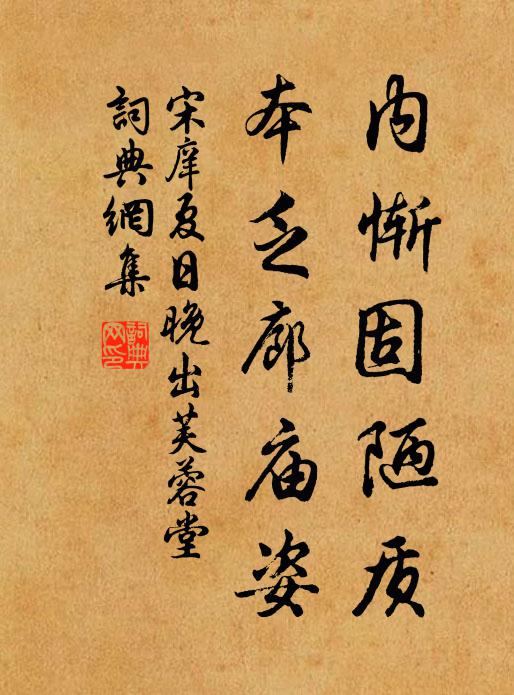 内惭固陋质
本乏廊庙姿
宋庠夏日晚出芙蓉堂
詞典網集
詞典网印